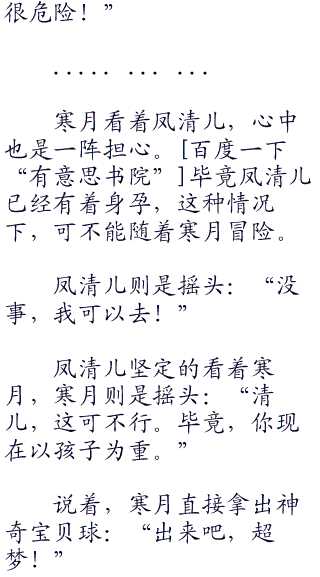 很危险！”
..... ... ...
寒月看着凤清儿，心中
也是一阵担心。[百度一下
“有意思书院”]毕竟凤清儿
已经有着身孕，这种情况
下，可不能随着寒月冒险。
凤清儿则是摇头：“没
事，我可以去！”
凤清儿坚定的看着寒
月，寒月则是摇头：“清
儿，这可不行。毕竟，你现
在以孩子为重。”
说着，寒月直接拿出神
奇宝贝球：“出来吧，超
梦！”